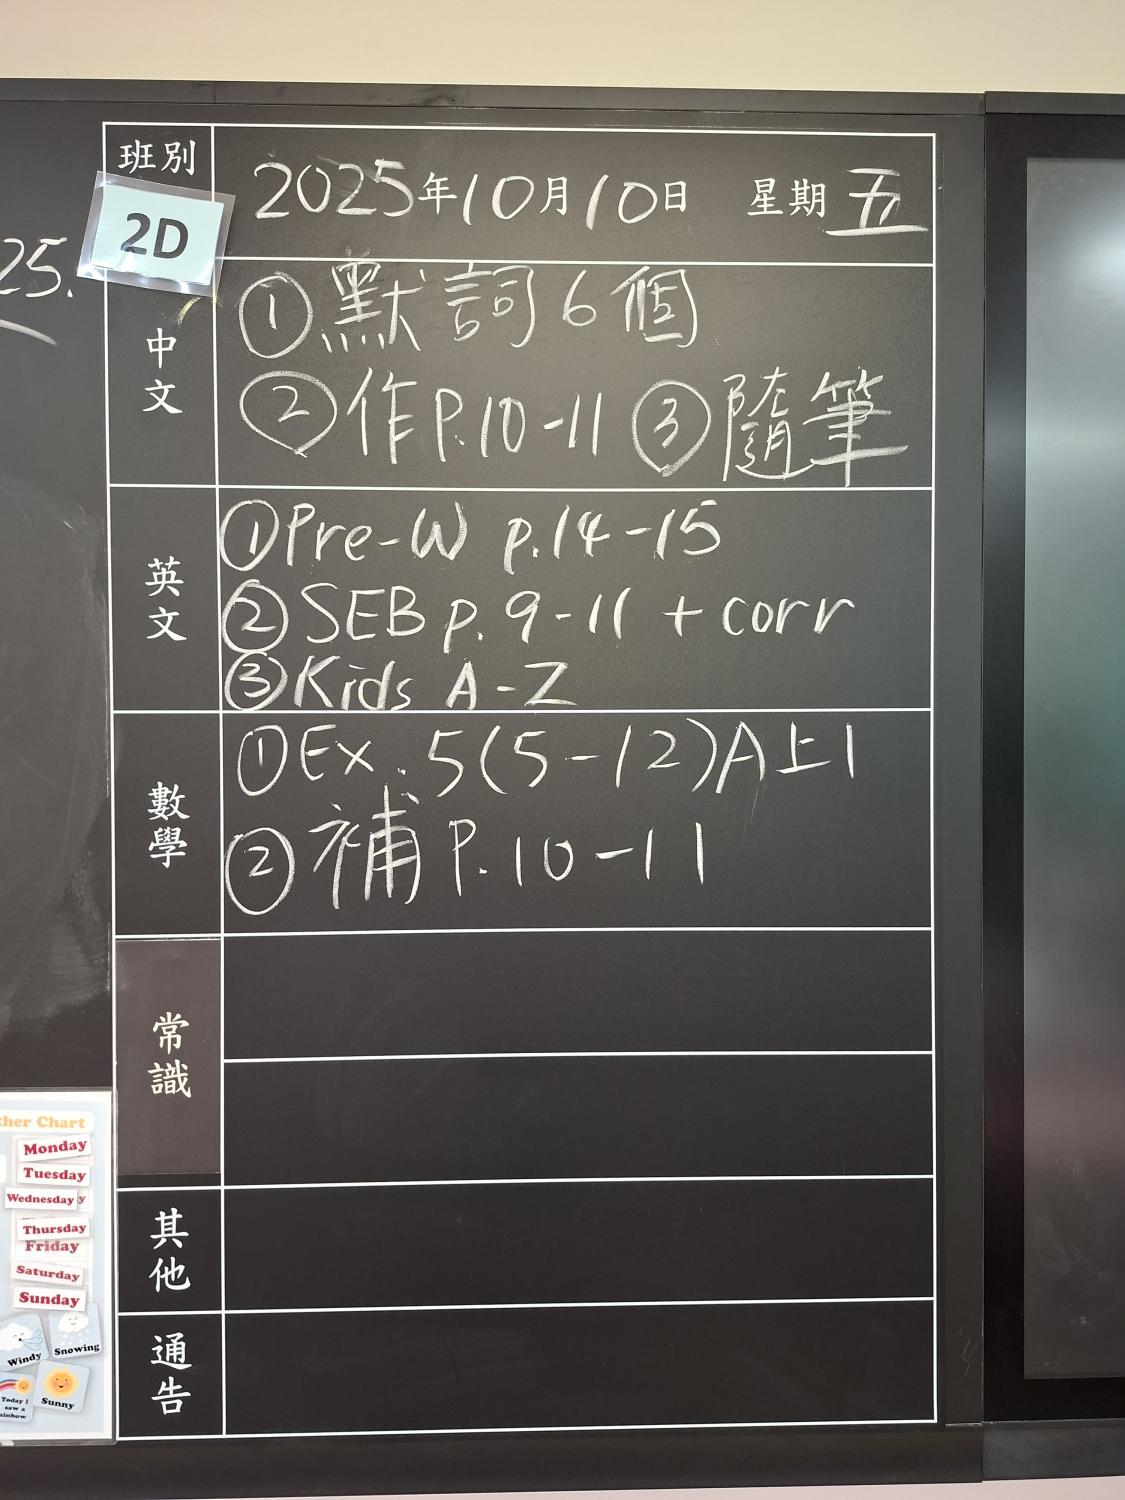 班別
2D
2025年10月10日 星期五
25.
中文
①默詞6個
②作P.10-11 ③隨筆
英文
①Pre-W p.14-15
②SEB p. 9-11 + corr
③Kids A-Z
數學
①Ex. 5(5-12)A上1
②補P.10-11
常識
其他
通告
ther Chart
Monday
Tuesday
Wednesday y
Thursday
Friday
Saturday
Sunday
Windy
Snowing
Today I
saw a
ainbow
Sunny